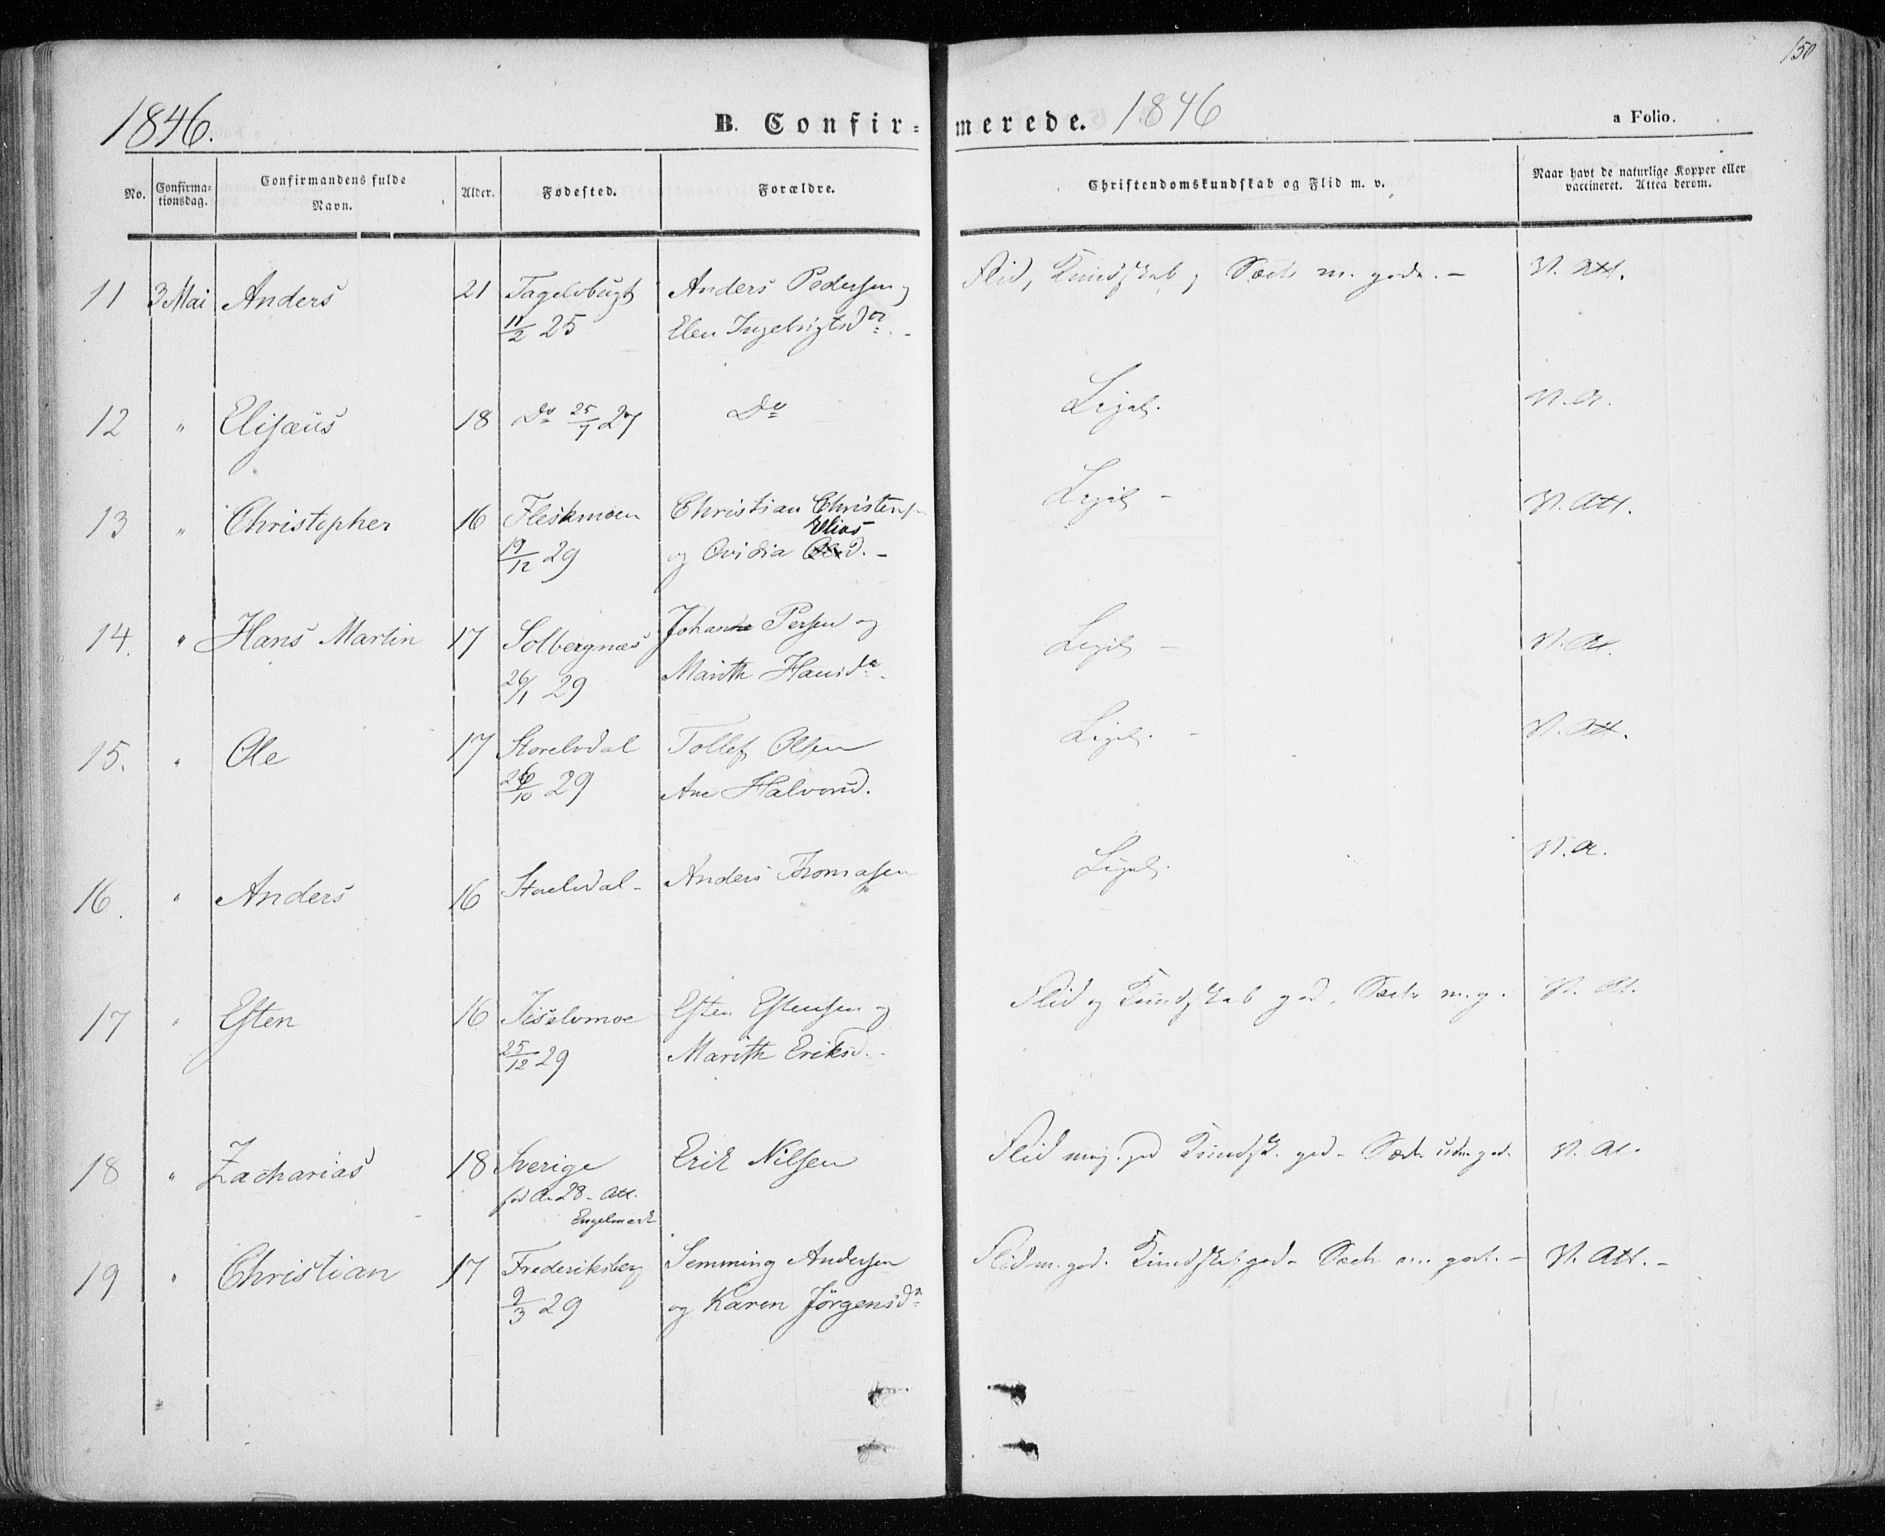 150
1846. B. Confirmerede. 1846 a Folio.
No. Confirmationsdag. Confirmandens fulde Navn. Alder. Fødested. Forældre. Christendomskundskab og Flid m. v. Naar havt de naturlige Kopper eller vaccineret. Attea derom.
11 3 Mai Anders 21 Tagelvbugt Anders Pedersen og Flid, Kundskab og Sæder m. gode. - V. Att.
11/2 25 Elen Ingebrigtsdr. -
12 " Elisæus 18 Do 25/7 27 Do Ligel. V. A.
13 " Christopher 16 Fleskmoen Christian Christens. Ligel. - V. Att.
Elias
19/12 29 og Ovidia d. -
14. " Hans Martin 17 Solbergnæs Johan Persen og Ligel. - V. Att.
26/1 29 Marith Hansdr.
15. " Ole 17 Storelvdal Tollef Olsen Ligel. - V. Att.
26/10 29 Ane Halvorsd.
16. " Anders 16 Storelvdal - Anders Thomasen Ligel. V. A.
17 " Esten 16 Kiselvmoe Esten Estensen og Flid og Kundskab god. Sæder m. g. V. Att.
25/12 29 Marith Eriksd. -
18 " Zacharias 18 Sverige Erik Nilsen Flid meg. god Kundsk. god - Sæder udm. god. V. At.
fød A. 28 - Att.
Engelmark
19 " Christian 17 Frederiksberg Semming Andersen Flid m. god. Kundskab god - Sæder m. gode. - V. Att. -
9/3 29 og Karen Jørgensdr.